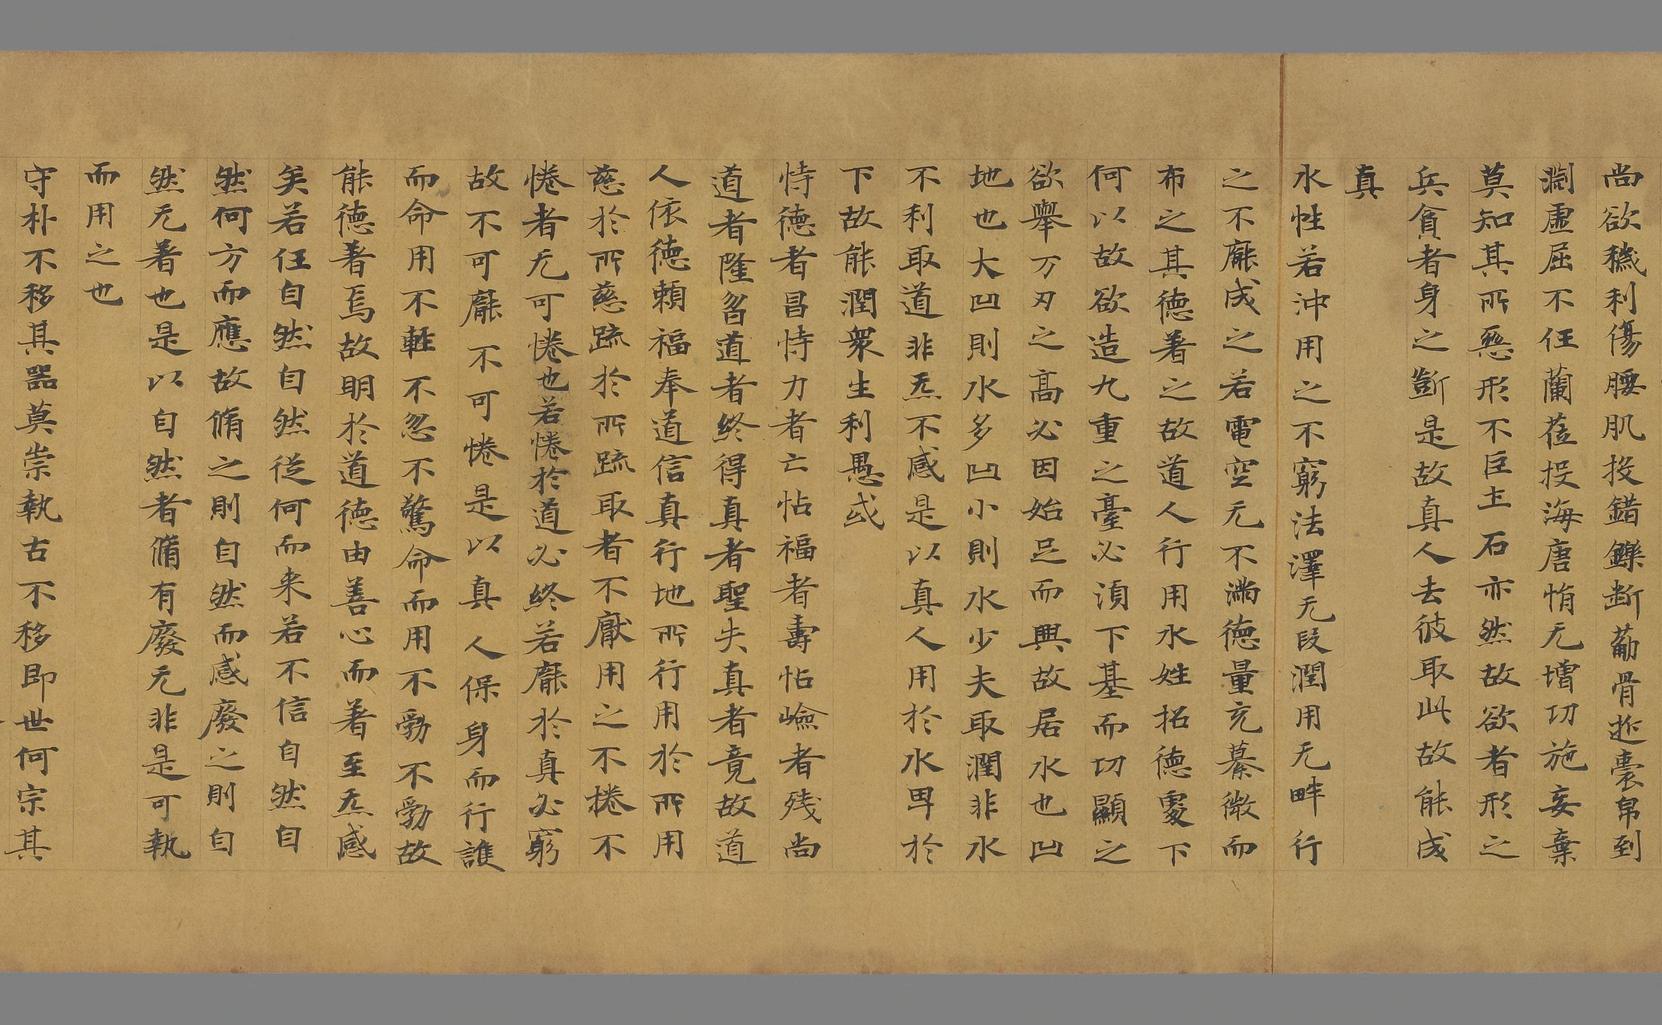 尚欲穢利傷腰肌投錯鑠断葡骨逝囊帛到
淵虛屈不任蘭莅投海唐悄无增功施妄棄
莫知其所惡形不臣玉石亦然故欲者形之
兵貪者身之斷是故真人去彼取此故能成
真
水性若沖用之不窮法澤无段潤用无畔行
之不靡成之若電空无不満徳量充纂微而
布之其徳著之故道人行用水姓招徳䨥下
何以故欲造九重之臺必湏下基而功顯之
欲舉万刃之高必因始足而興故居水也凹
地也大凹則水多凹小則水少夫取潤非水
不利取道非炁不感是以真人用於水卑於
下故能潤衆生利愚或
恃徳者昌恃力者亡怙福者壽怙嶮者残尚
道者隆習道者終得真者聖失真者竟故道
人依徳頼福奉道信真行地所行用於所用
慈於所慈䟽於所䟽取者不厭用之不捲不
惓者无可惓也若惓於道必終若靡於真必窮
故不可靡不可惓是以真人保身而行誰
而命用不輕不忽不驚命而用不勠不勠故
能徳著焉故明於道徳由善心而著至炁感
矣若任自然自然從何而来若不信自然自
然何方而應故脩之則自然而感廢之則自
然无著也是以自然者脩有廢无非是可執
而用之也
守朴不移其器莫崇執古不移即世何宗其